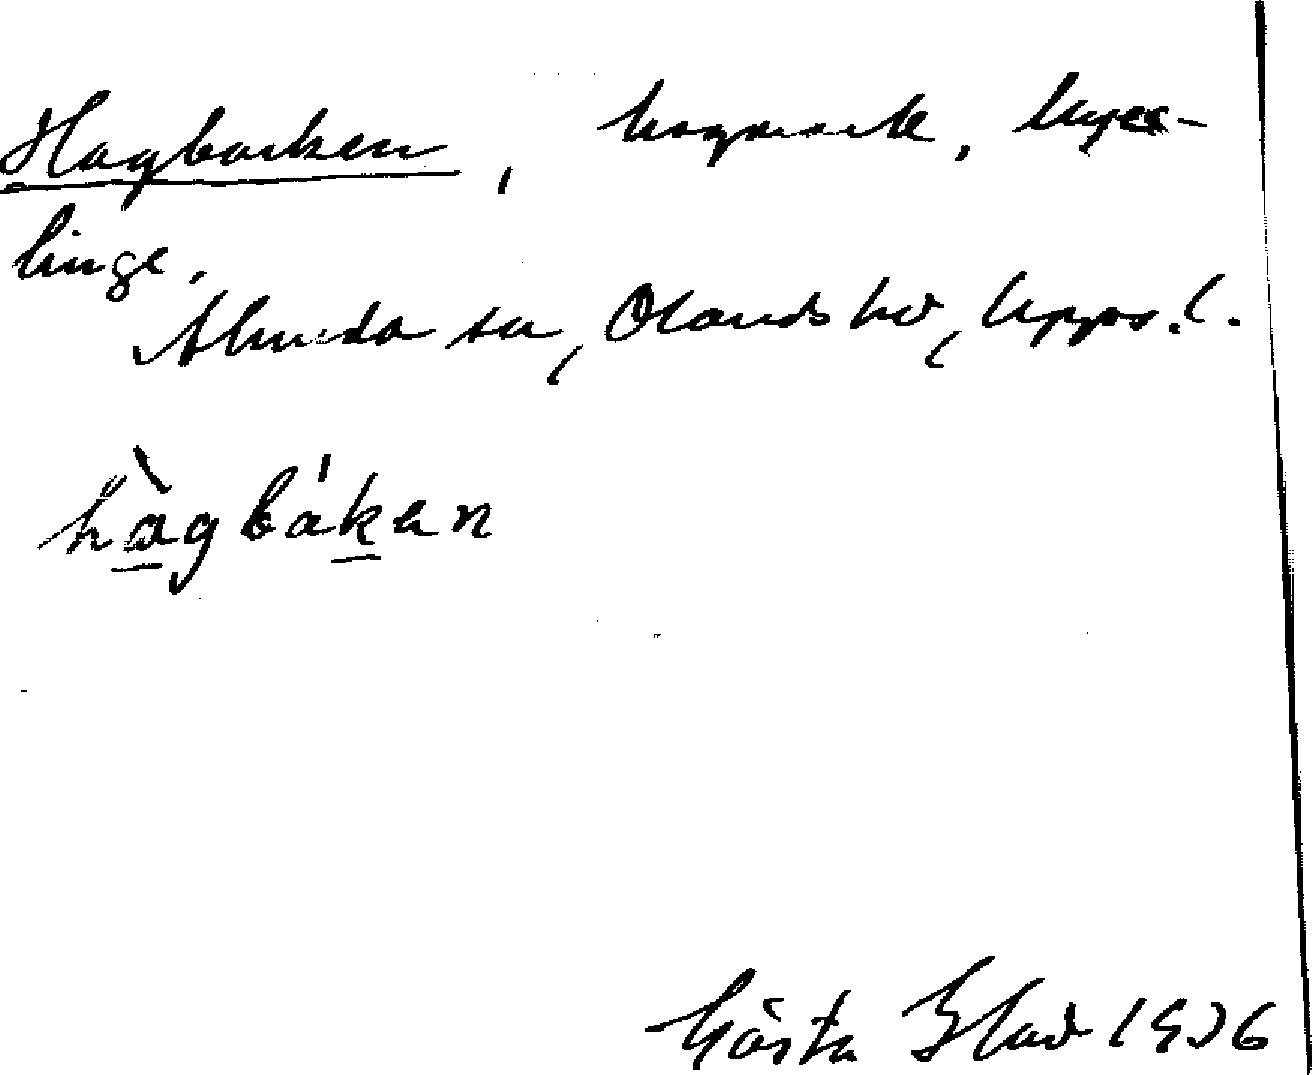 Hagbacken, hagmark, Kyrr-
linge.
Almunda sn, Olands hd, Upps. l.
hàgbákan
Gösta Blad 1936